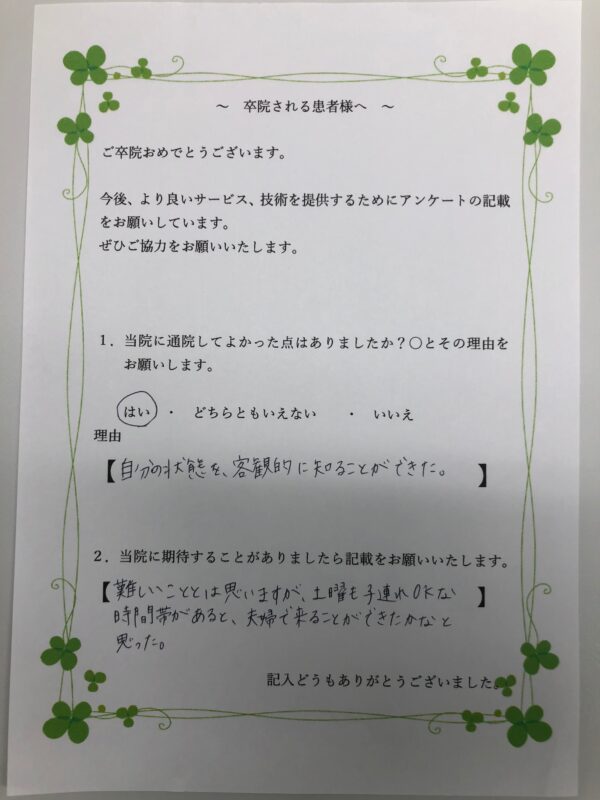 ～　卒院される患者様へ　～
ご卒院おめでとうございます。
今後、より良いサービス、技術を提供するためにアンケートの記載
をお願いしています。
ぜひご協力をお願いいたします。
１．当院に通院してよかった点はありましたか？〇とその理由を
お願いします。
はい　・　どちらともいえない　・　いいえ
理由
【自分の状態を、客観的に知ることができた。】
２．当院に期待することがありましたら記載をお願いいたします。
【難しいこととは思いますが、土曜も子連れOKな】
時間帯があると、夫婦で来ることができたかなと
思った。
記入どうもありがとうございました。